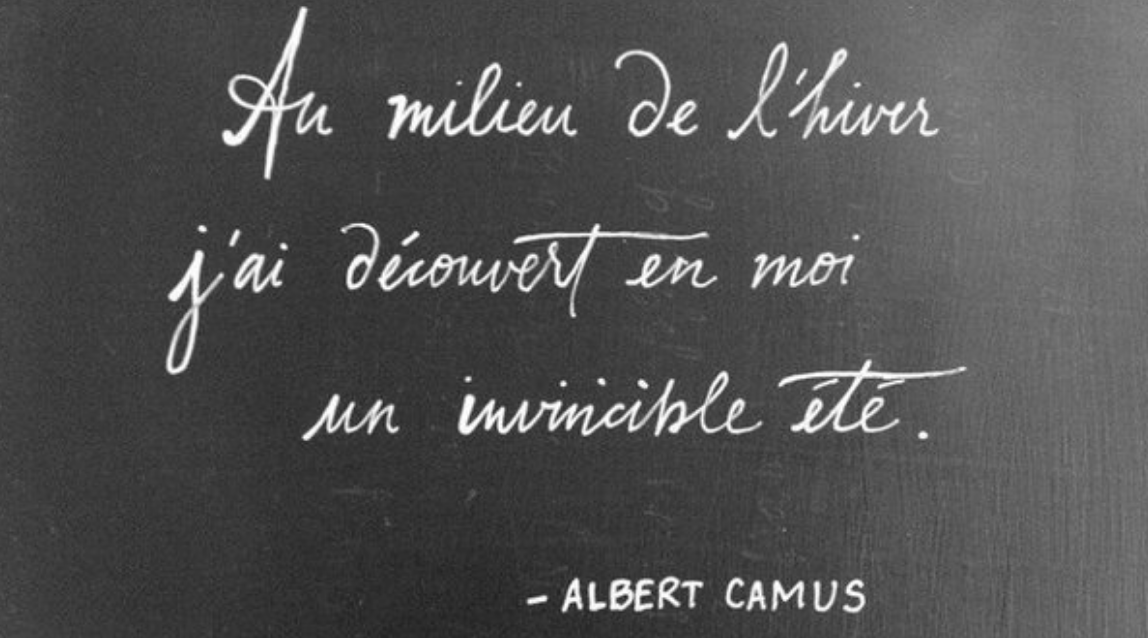 Au milieu de l'hiver
j'ai découvert en moi
un invincible été.
- ALBERT CAMUS